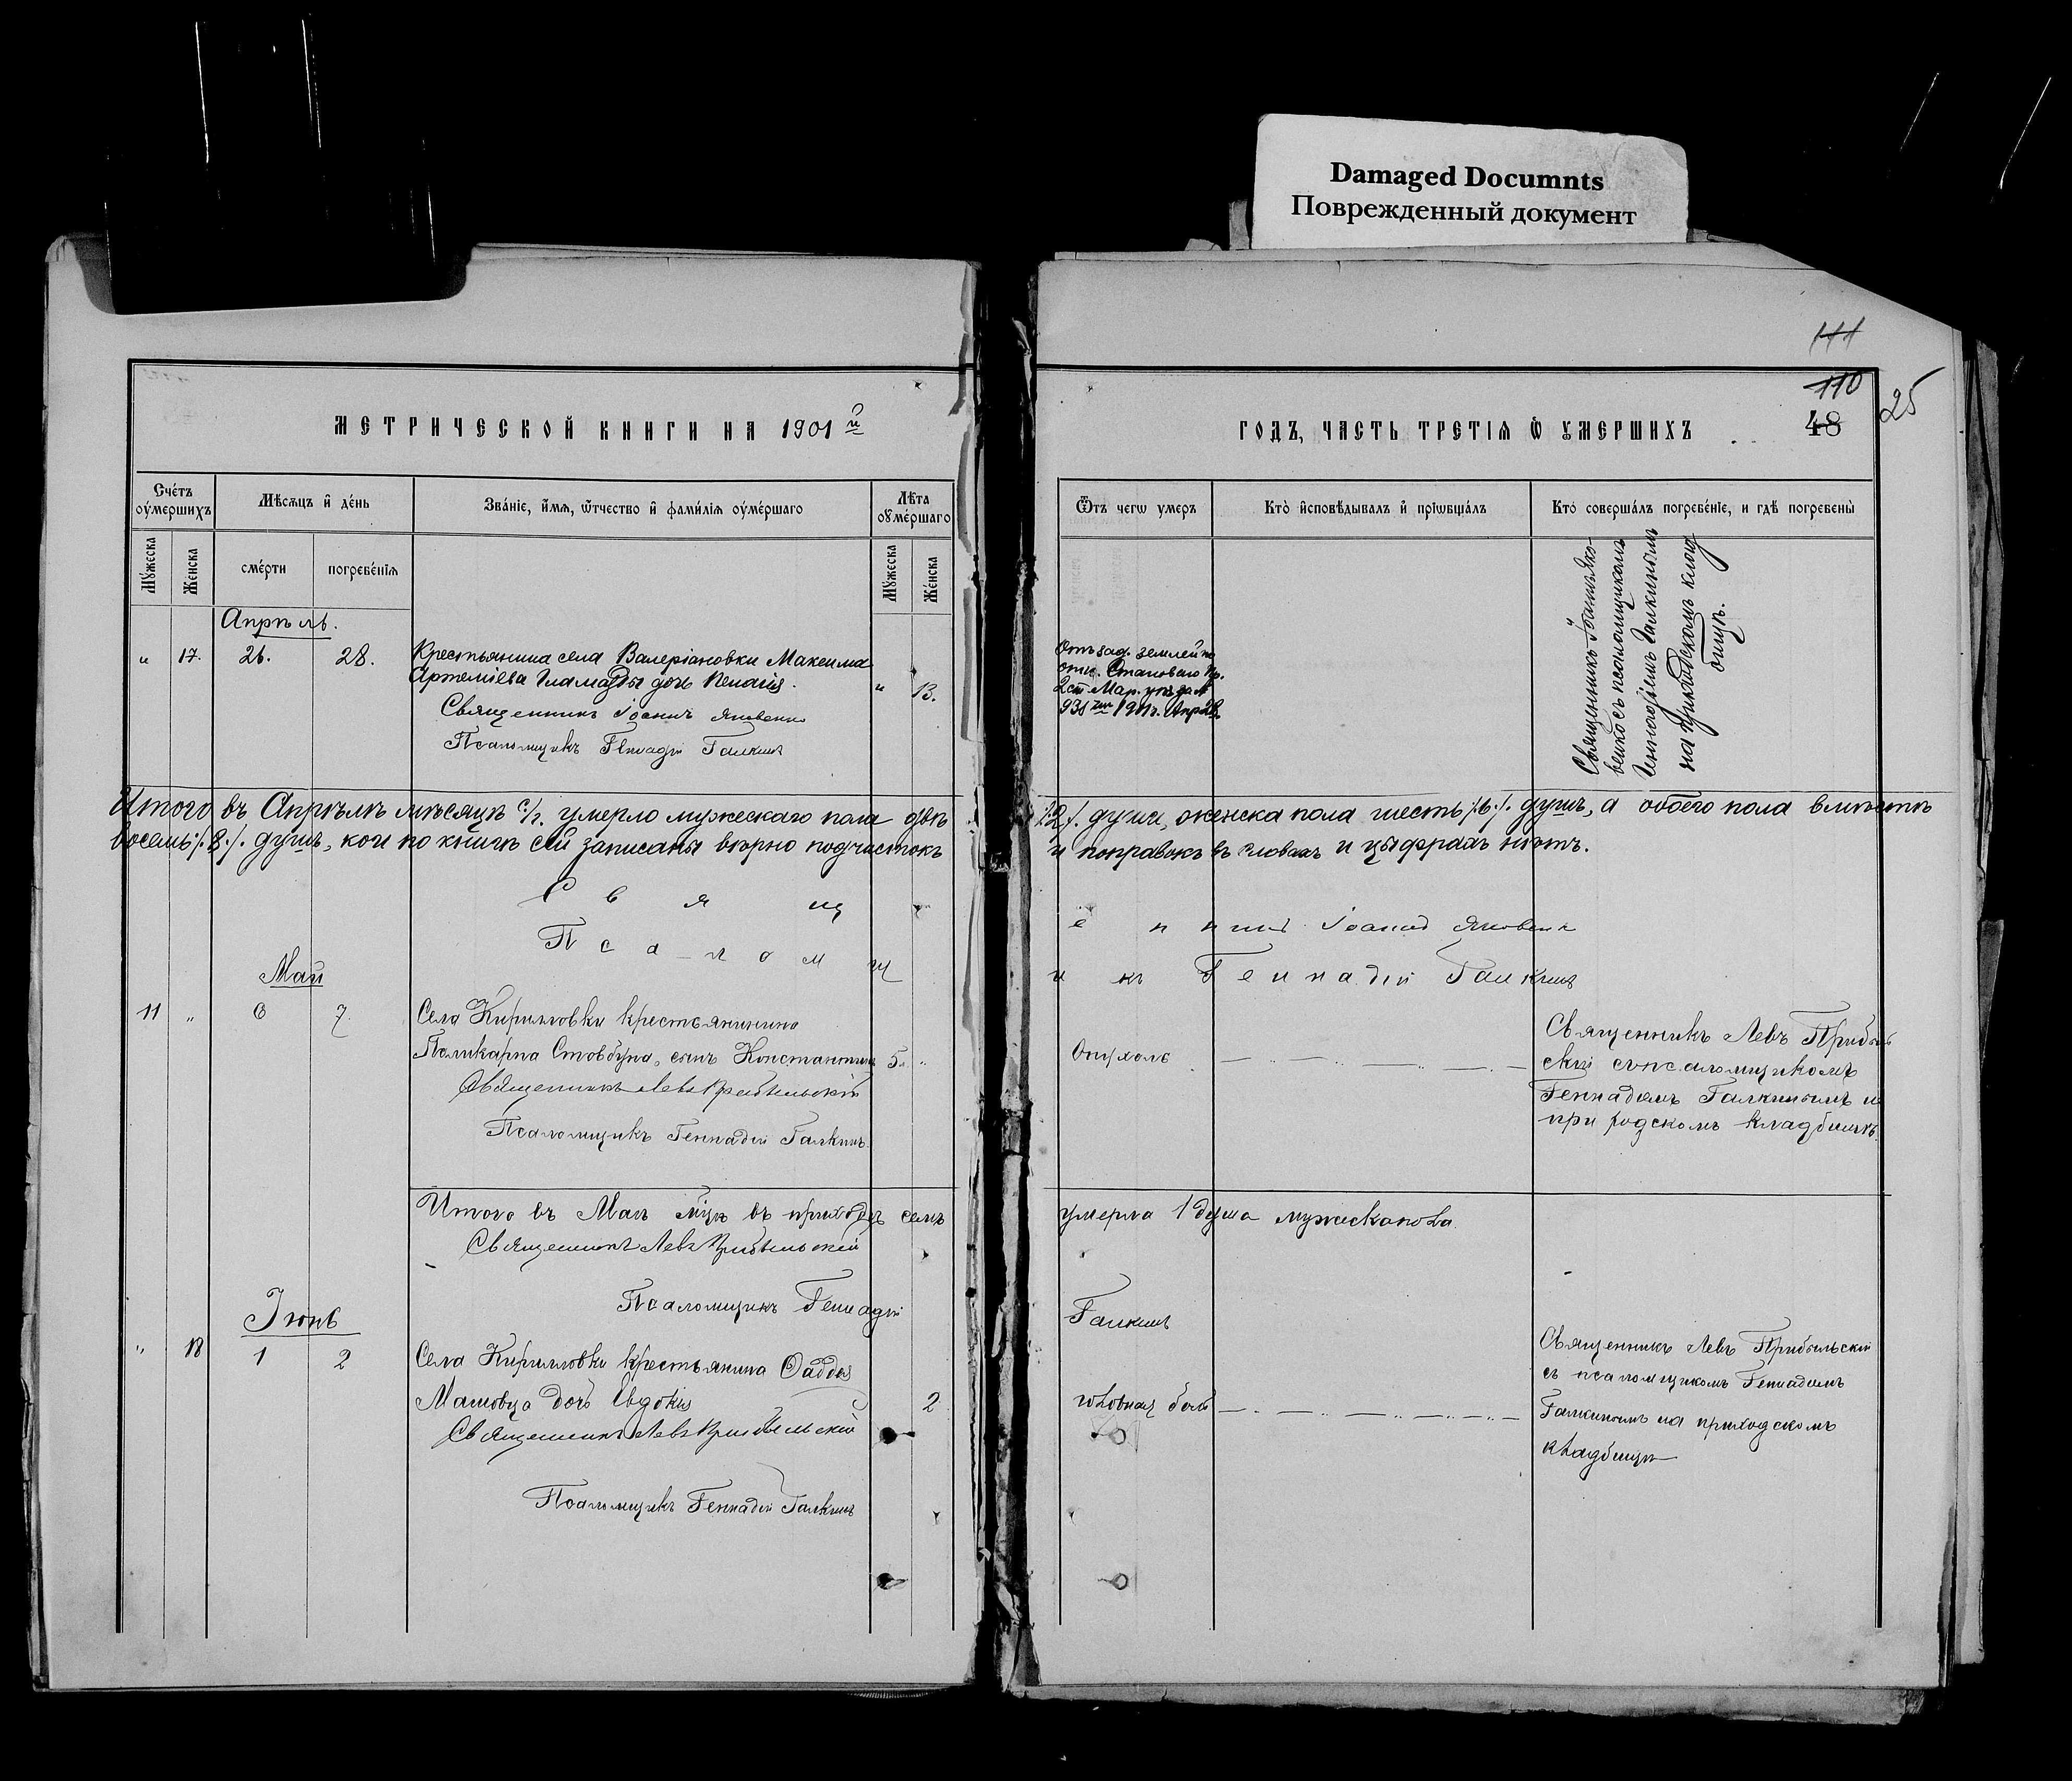 Damaged Documnts
Поврежденный документ
111
110
48
25
МЕТРИЧЕСКОЙ КНИГИ НА 1901й
ГОДЪ, ЧАСТЬ ТРЕТІѦ Ѡ УМЕРШИХЪ
Счетъ оумершихъ
Мѣсяцъ и день
Званіе, имя, ѿчество и фамилія оумершаго
Лѣта оумершаго
Мужеска
Женска
смерти
погребенія
Мужеска
Женска
Ѿ чегѡ умеръ
Кто исповѣдывалъ и пріѡбщалъ
Кто совершалъ погребеніе, и гдѣ погребены
Апрѣль.
" 17. 26. 28. Крестьянина села Валеріановки Максима
Артеміева дочь Пелагія. " 13.
Священникъ Іоаннъ Яковенко
Псаломщикъ Геннадій Галкинъ
Отъ зад. землей по
отн. Становаго Пр.
2 ст. Мар. уѣзда
931 1901 г. Апр. 28.
Священникъ Іоаннъ Яко-
венко съ псаломщикомъ
Геннадіемъ Галкинымъ
на приходскомъ клад
бищѣ.
Итого въ Апрѣлѣ мѣсяцѣ с/г. умерло мужескаго пола двѣ ./.2./. души, женска пола шесть ./.6./. душъ, а обоего пола вмѣстѣ
восемь ./.8./. душъ, кои по книгѣ сей записаны вѣрно подчистокъ и поправокъ въ словахъ и цыфрахъ нѣтъ.
С в я щ е н н икъ Іоаннъ Яковенко
П с а л о м щ и къ Г е н н а дій Галкинъ
Май
11 " 6 7 Села Кирилловки крестьянина
Поликарпа Стовбуна, сынъ Константинъ 5 л. "
Священникъ Левъ Прибыльскій
Псаломщикъ Геннадій Галкинъ
Опухоль
Священникъ Левъ Прибыль
скій съ псаломщикомъ
Геннадіемъ Галкинымъ на
приходскомъ кладбищѣ.
Итого въ Маѣ м҃цѣ въ приходѣ семъ умерла 1 душа мужеска пола
Священникъ Левъ Прибыльскій
Псаломщикъ Геннадій Галкинъ
Іюнь
" 18 1 2 Села Кирилловки крестьянина Фаддея
дочь Евдокія 2
Священникъ Левъ Прибыльскій
Псаломщикъ Геннадій Галкинъ
головная боль
Священникъ Левъ Прибыльскій
съ псаломщикомъ Геннадіемъ
Галкинымъ на приходскомъ
кладбищѣ